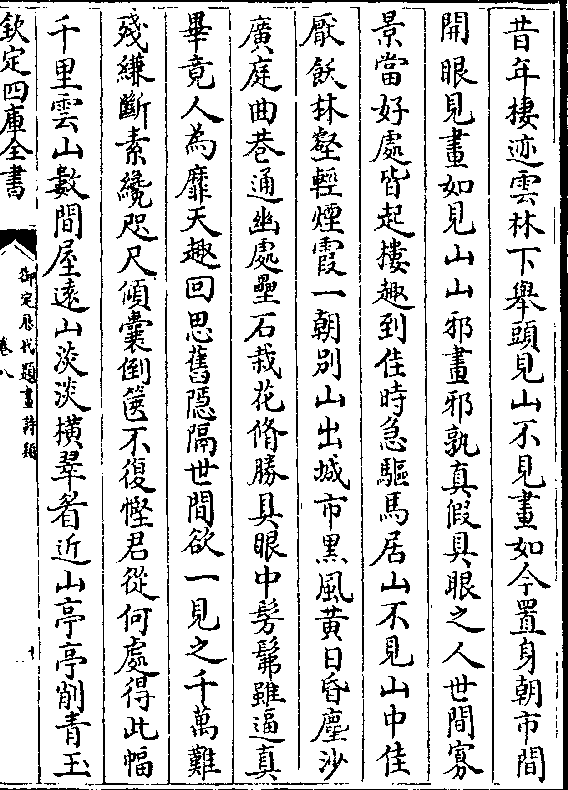 昔年棲迹雲林下舉頭見山不見畫如今置身朝市間
開眼見畫如見山山邪畫邪孰真假具眼之人世間寡
景當好處皆起樓趣到佳時急驅馬居山不見山中佳
厭飫林壑輕煙霞一朝別山出城市黑風黃日昏塵沙
廣庭曲巷通幽處壘石栽花脩勝具眼中髣髴雖逼真
畢竟人為靡天趣回思舊隱隔世間欲一見之千萬難
殘縑斷素纔咫尺傾囊倒篋不復慳君從何處得此幅
千里雲山數間屋遠山淡淡橫翠眉近山亭亭削青玉
欽定四庫全書
御定歷代題畫詩類
卷八